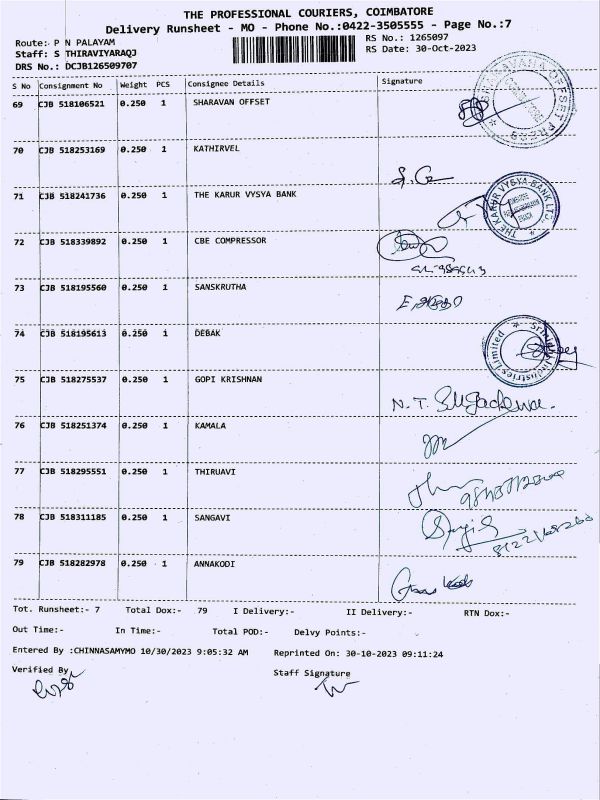 THE PROFESSIONAL COURIERS, COIMBATORE
Delivery Runsheet - MO - Phone No.:0422-3505555 - Page No.:7
Route: P N PALAYAM
RS No.: 1265097
Staff: S THIRAVIYARAQJ
RS Date: 30-Oct-2023
DRS No.: DCJB126509707
S No Consignment No Weight PCS Consignee Details Signature
69 CJB 518106521 0.250 1 SHARAVAN OFFSET
70 CJB 518253169 0.250 1 KATHIRVEL
71 CJB 518241736 0.250 1 THE KARUR VYSYA BANK
THE KARUR VYSYA BANK LTD.
72 CJB 518339892 0.250 1 CBE COMPRESSOR
73 CJB 518195560 0.250 1 SANSKRUTHA
74 CJB 518195613 0.250 1 DEBAK
Industries Limited
75 CJB 518275537 0.250 1 GOPI KRISHNAN
N. T.
76 CJB 518251374 0.250 1 KAMALA
77 CJB 518295551 0.250 1 THIRUAVI
78 CJB 518311185 0.250 1 SANGAVI
79 CJB 518282978 0.250 1 ANNAKODI
Tot. Runsheet:- 7 Total Dox:- 79 I Delivery:- II Delivery:- RTN Dox:-
Out Time:- In Time:- Total POD:- Delvy Points:-
Entered By :CHINNASAMYMO 10/30/2023 9:05:32 AM Reprinted On: 30-10-2023 09:11:24
Verified By
Staff Signature